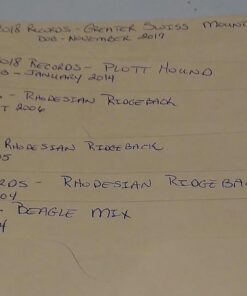 2018 RECORDS - GREATER SWISS MOUN
DOB - NOVEMBER 2017
2018 RECORDS - PLOTT HOUND
B - JANUARY 2014
- RHODESIAN RIDGEBACK
T 2006
RHODESIAN RIDGEBACK
05
RDS - RHODESIAN RIDGEBA
04
- BEAGLE MIX
4